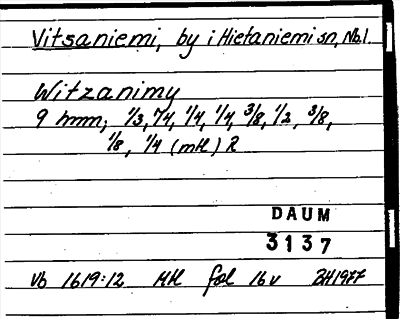 Vitsaniemi, by i Hietaniemi sn, Nb.l.
Witzanimy
9 hmn; 1/3, 7/4, 1/4, 1/4, 3/8, 1/2, 3/8,
1/8, 1/4 (mtl) R
DAUM
3137
Vb 1619:12 Mtl fol 16v BH1977